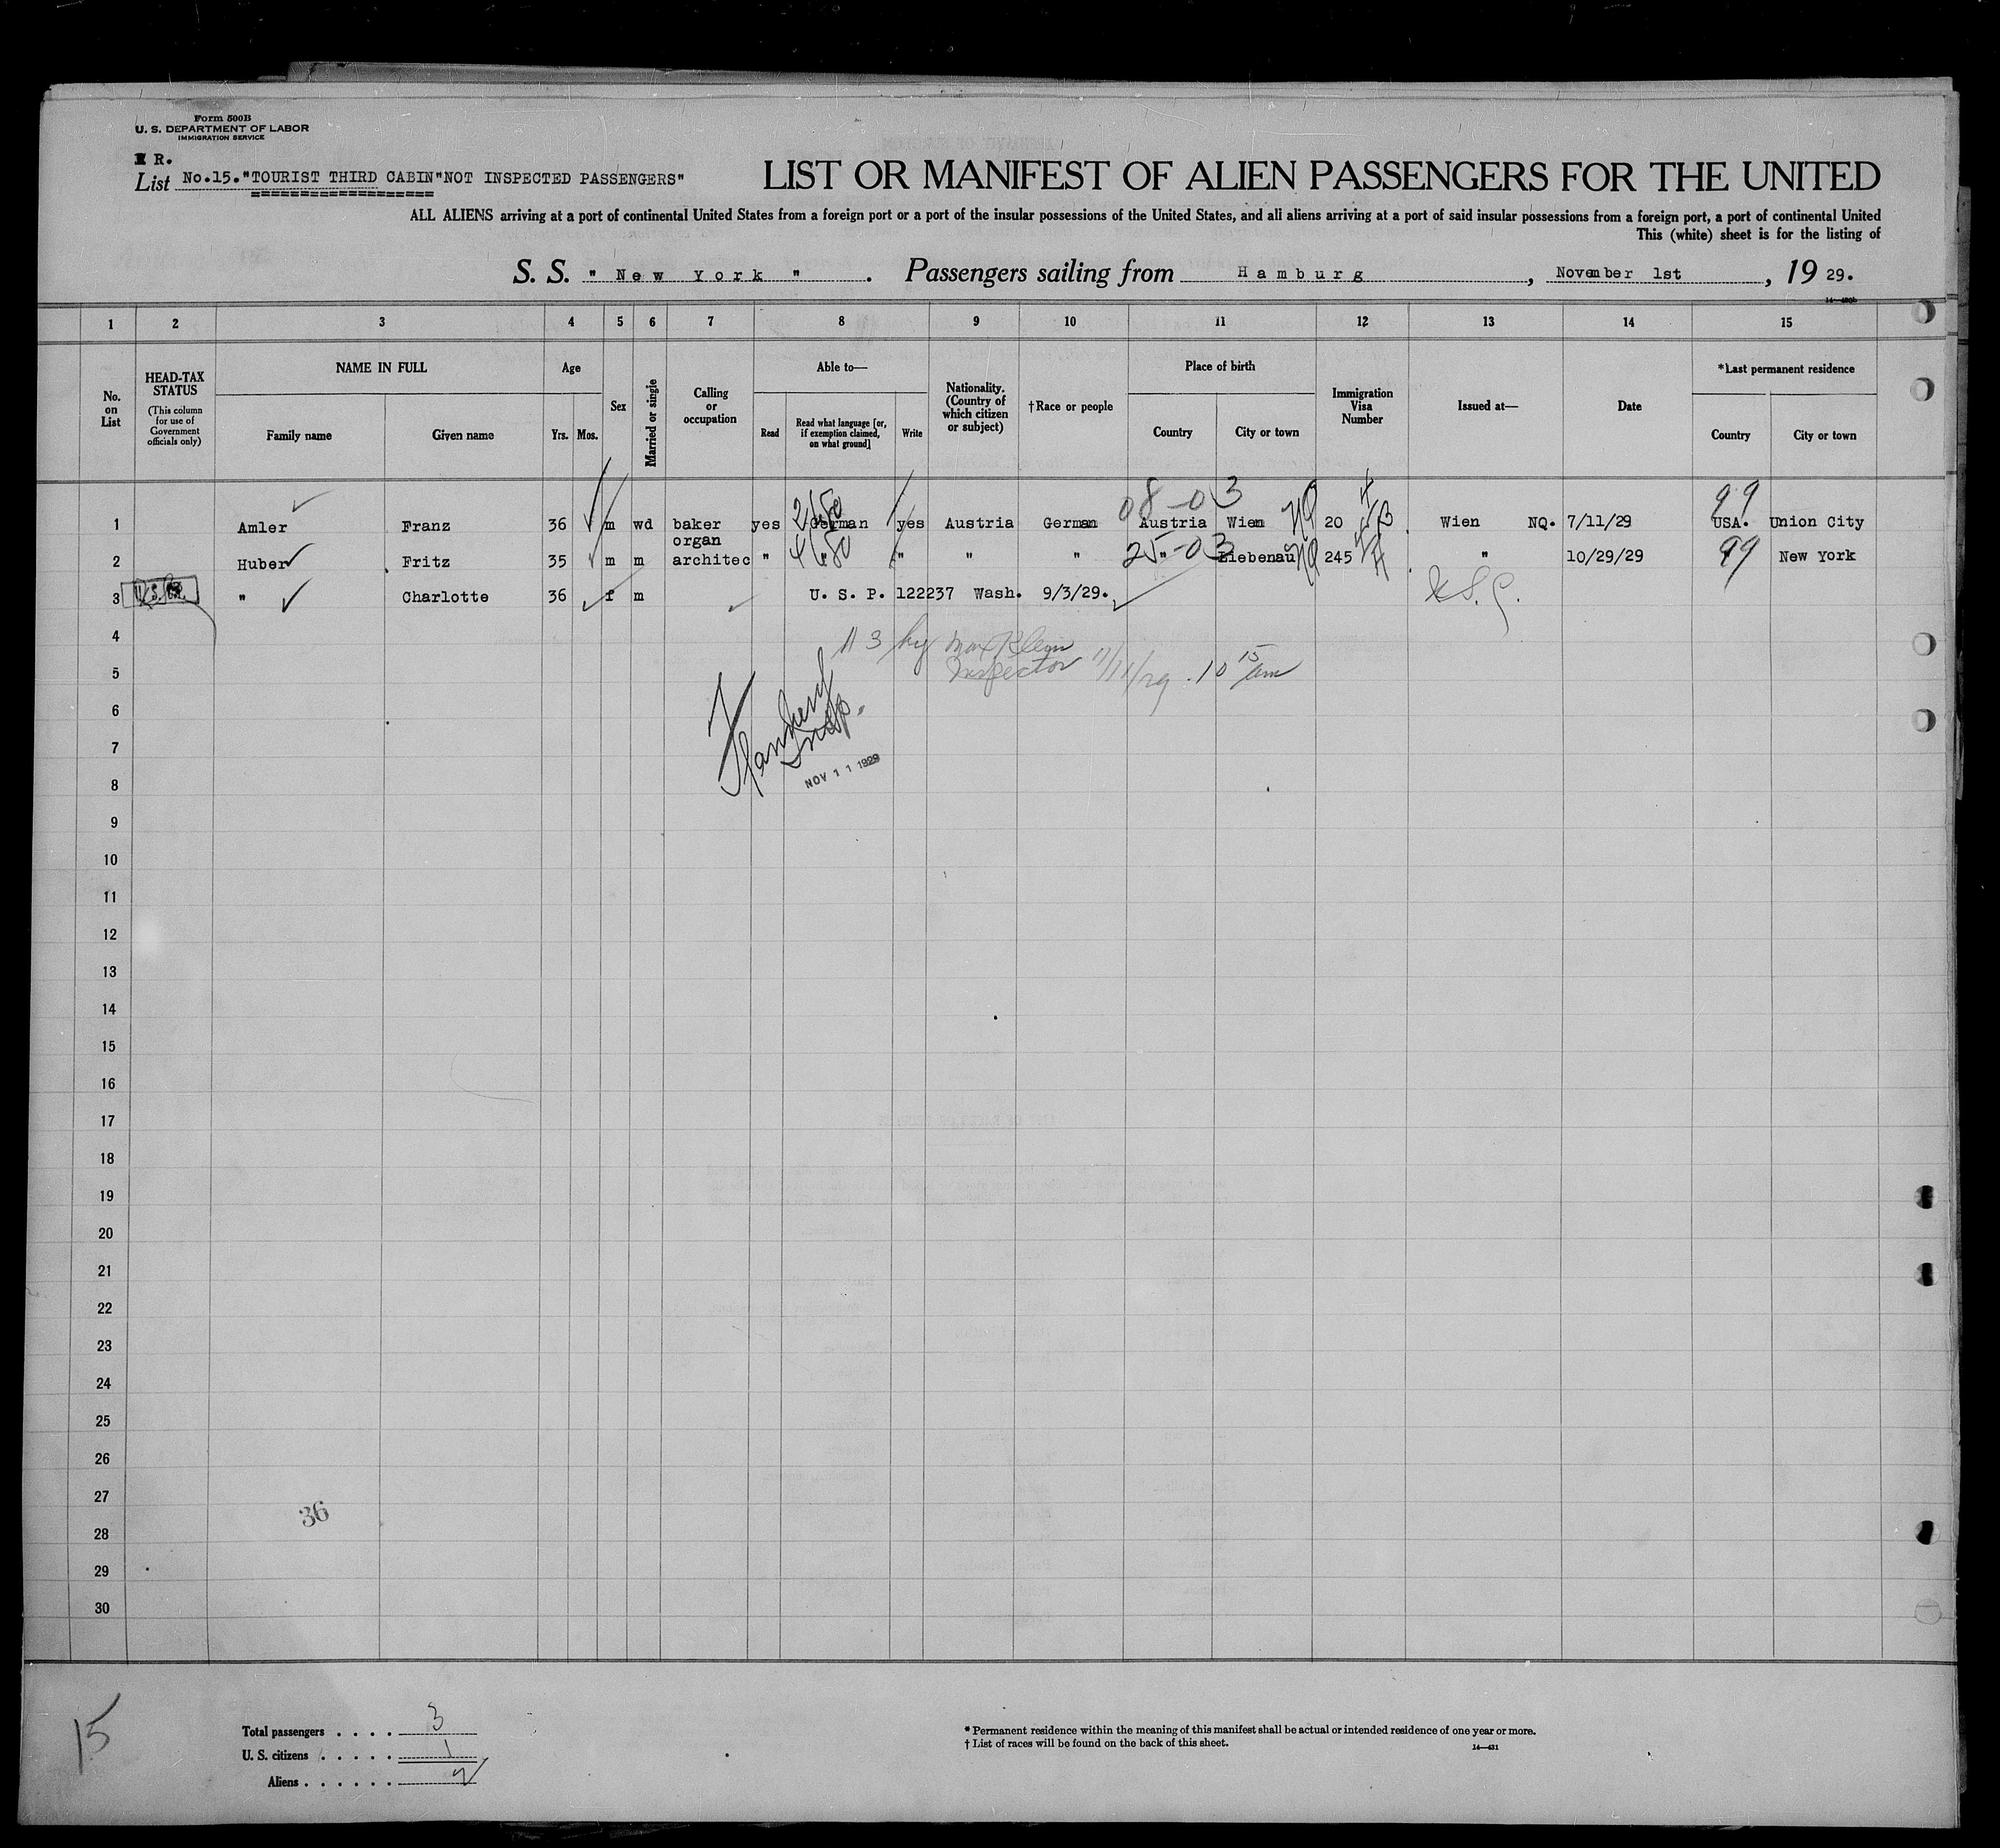 Form 500B
U. S. DEPARTMENT OF LABOR
IMMIGRATION SERVICE
R.
List No.15."TOURIST THIRD CABIN"NOT INSPECTED PASSENGERS"
LIST OR MANIFEST OF ALIEN PASSENGERS FOR THE UNITED
ALL ALIENS arriving at a port of continental United States from a foreign port or a port of the insular possessions of the United States, and all aliens arriving at a port of said insular possessions from a foreign port, a port of continental United
This (white) sheet is for the listing of
S. S. "New York". Passengers sailing from Hamburg, November 1st, 1929.
1 2 3 4 5 6 7 8 9 10 11 12 13 14 15
No. on List
HEAD-TAX STATUS (This column for use of Government officials only)
NAME IN FULL
Family name Given name
Age
Yrs. Mos.
Sex
Married or single
Calling or occupation
Able to—
Read Read what language [or, if exemption claimed, on what ground] Write
Nationality. (Country of which citizen or subject)
†Race or people
Place of birth
Country City or town
Immigration Visa Number
Issued at—
Date
*Last permanent residence
Country City or town
08-03 99
1 Amler Franz 36 m wd baker yes German yes Austria German Austria Wien 20 Wien NQ. 7/11/29 USA. Union City
organ
2 Huber Fritz 35 m m architec " " " " " 25-03 Liebenau 245 " 10/29/29 99 New York
3 " Charlotte 36 f m U. S. P. 122237 Wash. 9/3/29.
4 3 by Max Klein
5 Inspector 11/11/29. 10 15 am
6
7 Insp.
8 NOV 11 1929
9
10
11
12
13
14
15
16
17
18
19
20
21
22
23
24
25
26
27
36
28
29
30
15
Total passengers . . . . 3
U. S. citizens . . . . . 1
Aliens . . . . . . 2
* Permanent residence within the meaning of this manifest shall be actual or intended residence of one year or more.
† List of races will be found on the back of this sheet.
14—431